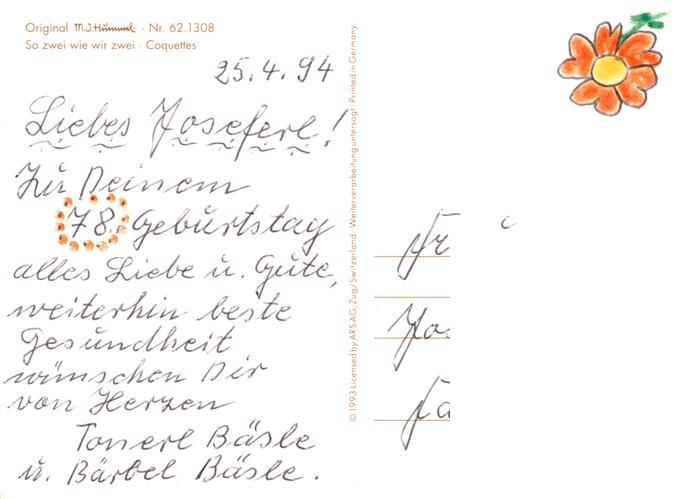 Original M.J.Hummel · Nr. 62.1308
So zwei wie wir zwei · Coquettes
25.4.94
Liebes Joseferl!
Zu Deinem
78. Geburtstag
alles Liebe u. Gute,
weiterhin beste
Gesundheit
wünschen Dir
von Herzen
Tonerl Bäsle
u. Bärbel Bäsle.
© 1993 Licensed by ARS AG, Zug/Switzerland Weiterverarbeitung untersagt Printed in Germany
Fr
Jos